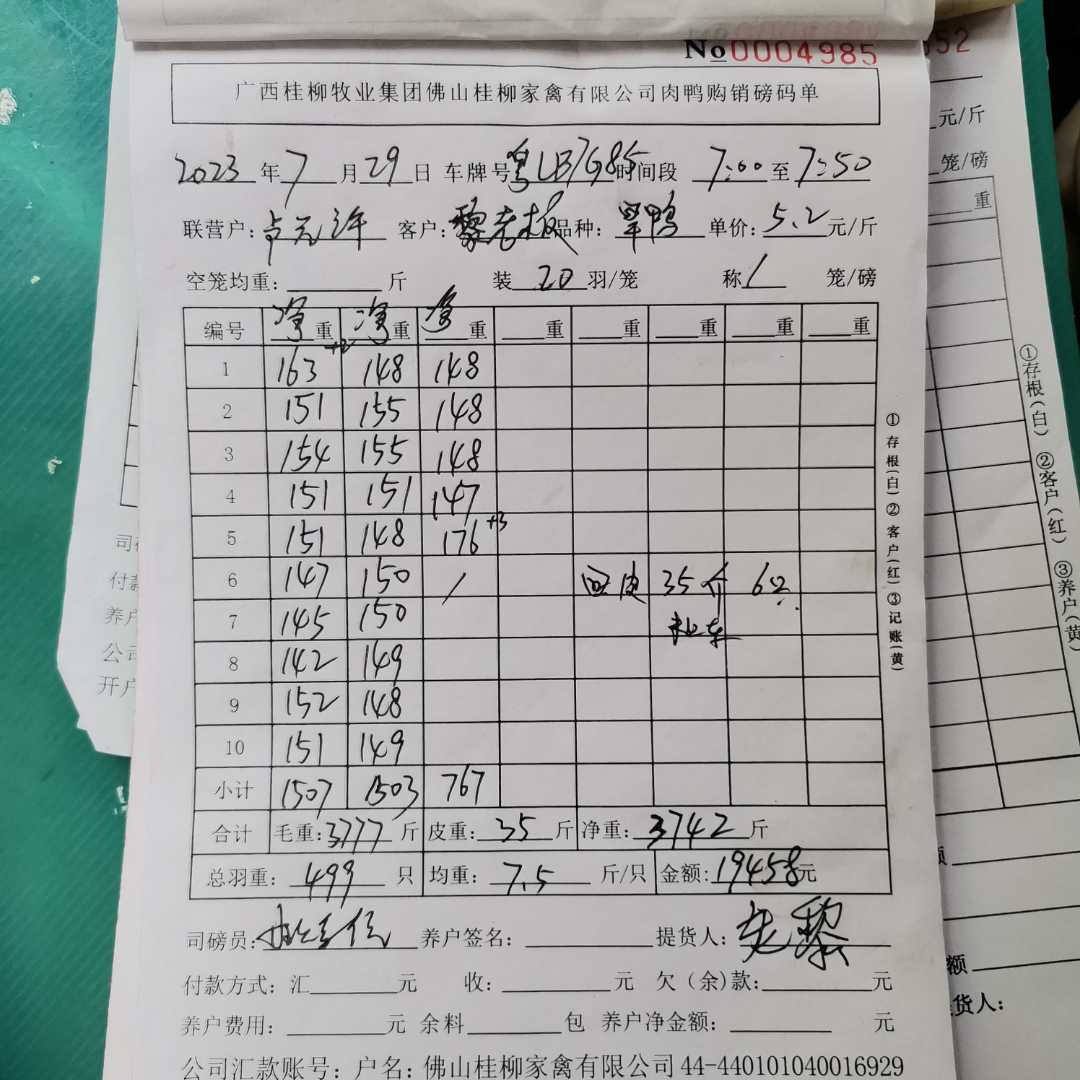 No 0004985
广西桂柳牧业集团佛山桂柳家禽有限公司肉鸭购销磅码单
2023 年 7 月 29 日 车牌号 粤LB7G85 时间段 7:00 至 7:50
联营户: 客户: 黎老板 品种: 单价: 5.2 元/斤
空笼均重: 斤 装 20 羽/笼 称 1 笼/磅
编号 净重 净重 净重 重 重 重 重 重
1 163 +2 148 148
2 151 155 148
3 154 155 148
4 151 151 147
5 151 148 176 +3
6 147 150 / 回皮 35斤 6只
7 145 150
8 142 149
9 152 148
10 151 149
小计 1507 1503 767
合计 毛重: 3777 斤 皮重: 35 斤 净重: 3742 斤
总羽重: 499 只 均重: 7.5 斤/只 金额: 19458 元
司磅员: 养户签名: 提货人: 老黎
付款方式: 汇 元 收: 元 欠(余)款: 元
养户费用: 元 余料 包 养户净金额: 元
公司汇款账号: 户名: 佛山桂柳家禽有限公司 44-440101040016929
①存根(白)②客户(红)③记账(黄)
52
元/斤
笼/磅
重
①存根(白) ②客户(红) ③养户(黄)
额
货人:
司
付款
养户
公司
开户